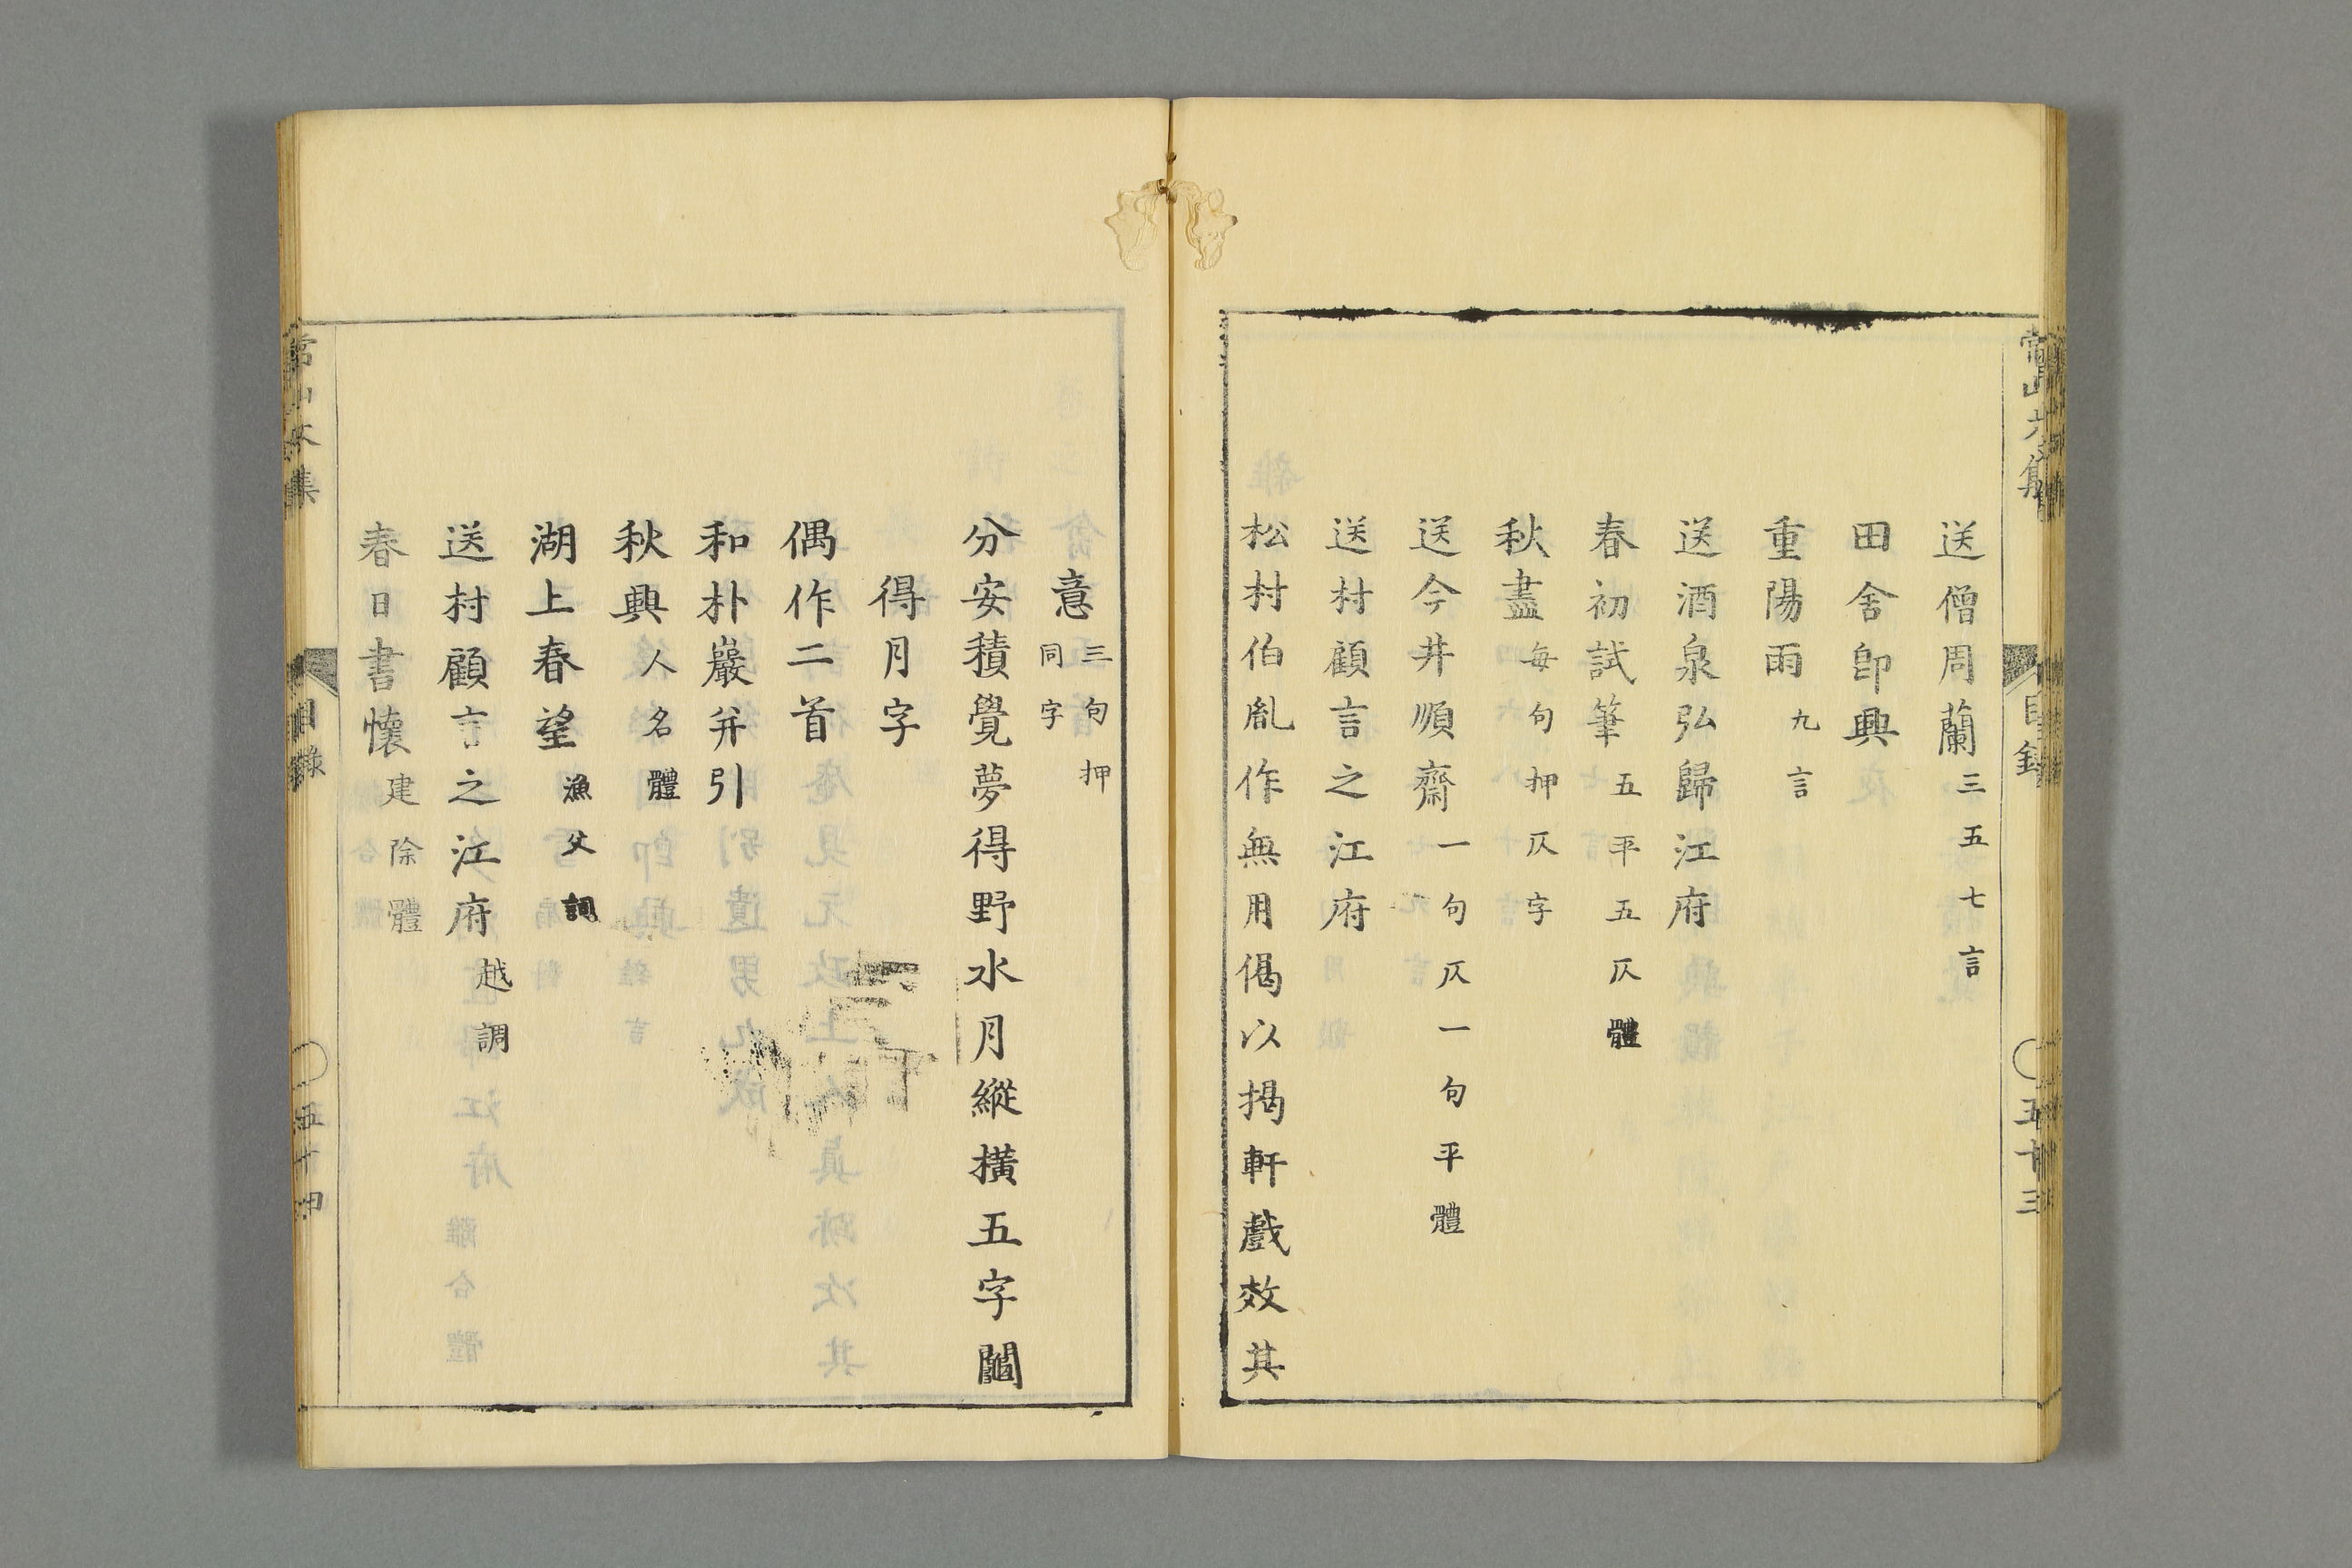 常山文集
目錄
五十三
送僧周蘭 三五七言
田舍卽興
重陽雨 九言
送酒泉弘歸江府
春初試筆 五平五仄體
秋盡 每句押仄字
送今井順齋 一句仄一句平體
送村顧言之江府
松村伯胤作無用偈以揭軒戲效其
意 三句押
同字
分安積覺夢得野水月縱橫五字鬮
得月字
偶作二首
和朴巖幷引
秋興 人名體
湖上春望 漁父詞
送村顧言之江府 越調
春日書懷 建除體
常山文集
目錄
五十四